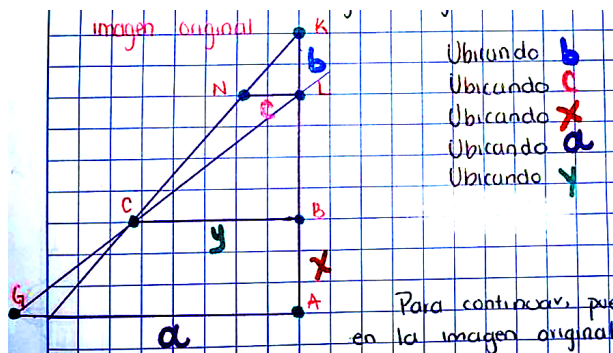 imagen original
K
b
N
L
c
C
B
y
x
G
A
a
Ubicundo b
Ubicando c
Ubicando x
Ubicando a
Ubicando y
Para continuar, pue
en la imagen original